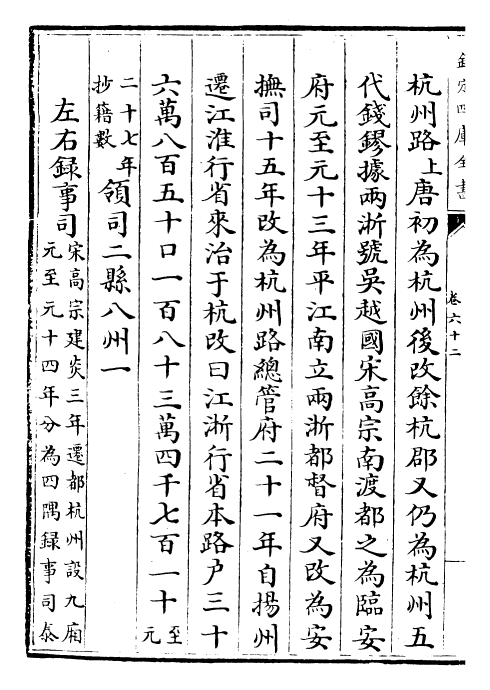 欽定四庫全書
卷六十二
杭州路上唐初為杭州後改餘杭郡又仍為杭州五
代錢鏐據兩浙號吳越國宋高宗南渡都之為臨安
府元至元十三年平江南立兩浙都督府又改為安
撫司十五年改為杭州路總管府二十一年自揚州
遷江淮行省來治于杭改曰江浙行省本路戶三十
六萬八百五十口一百八十三萬四千七百一十至元
二十七年抄籍數領司二縣八州一
左右録事司宋高宗建炎三年遷都杭州設九廂
元至元十四年分為四隅録事司泰